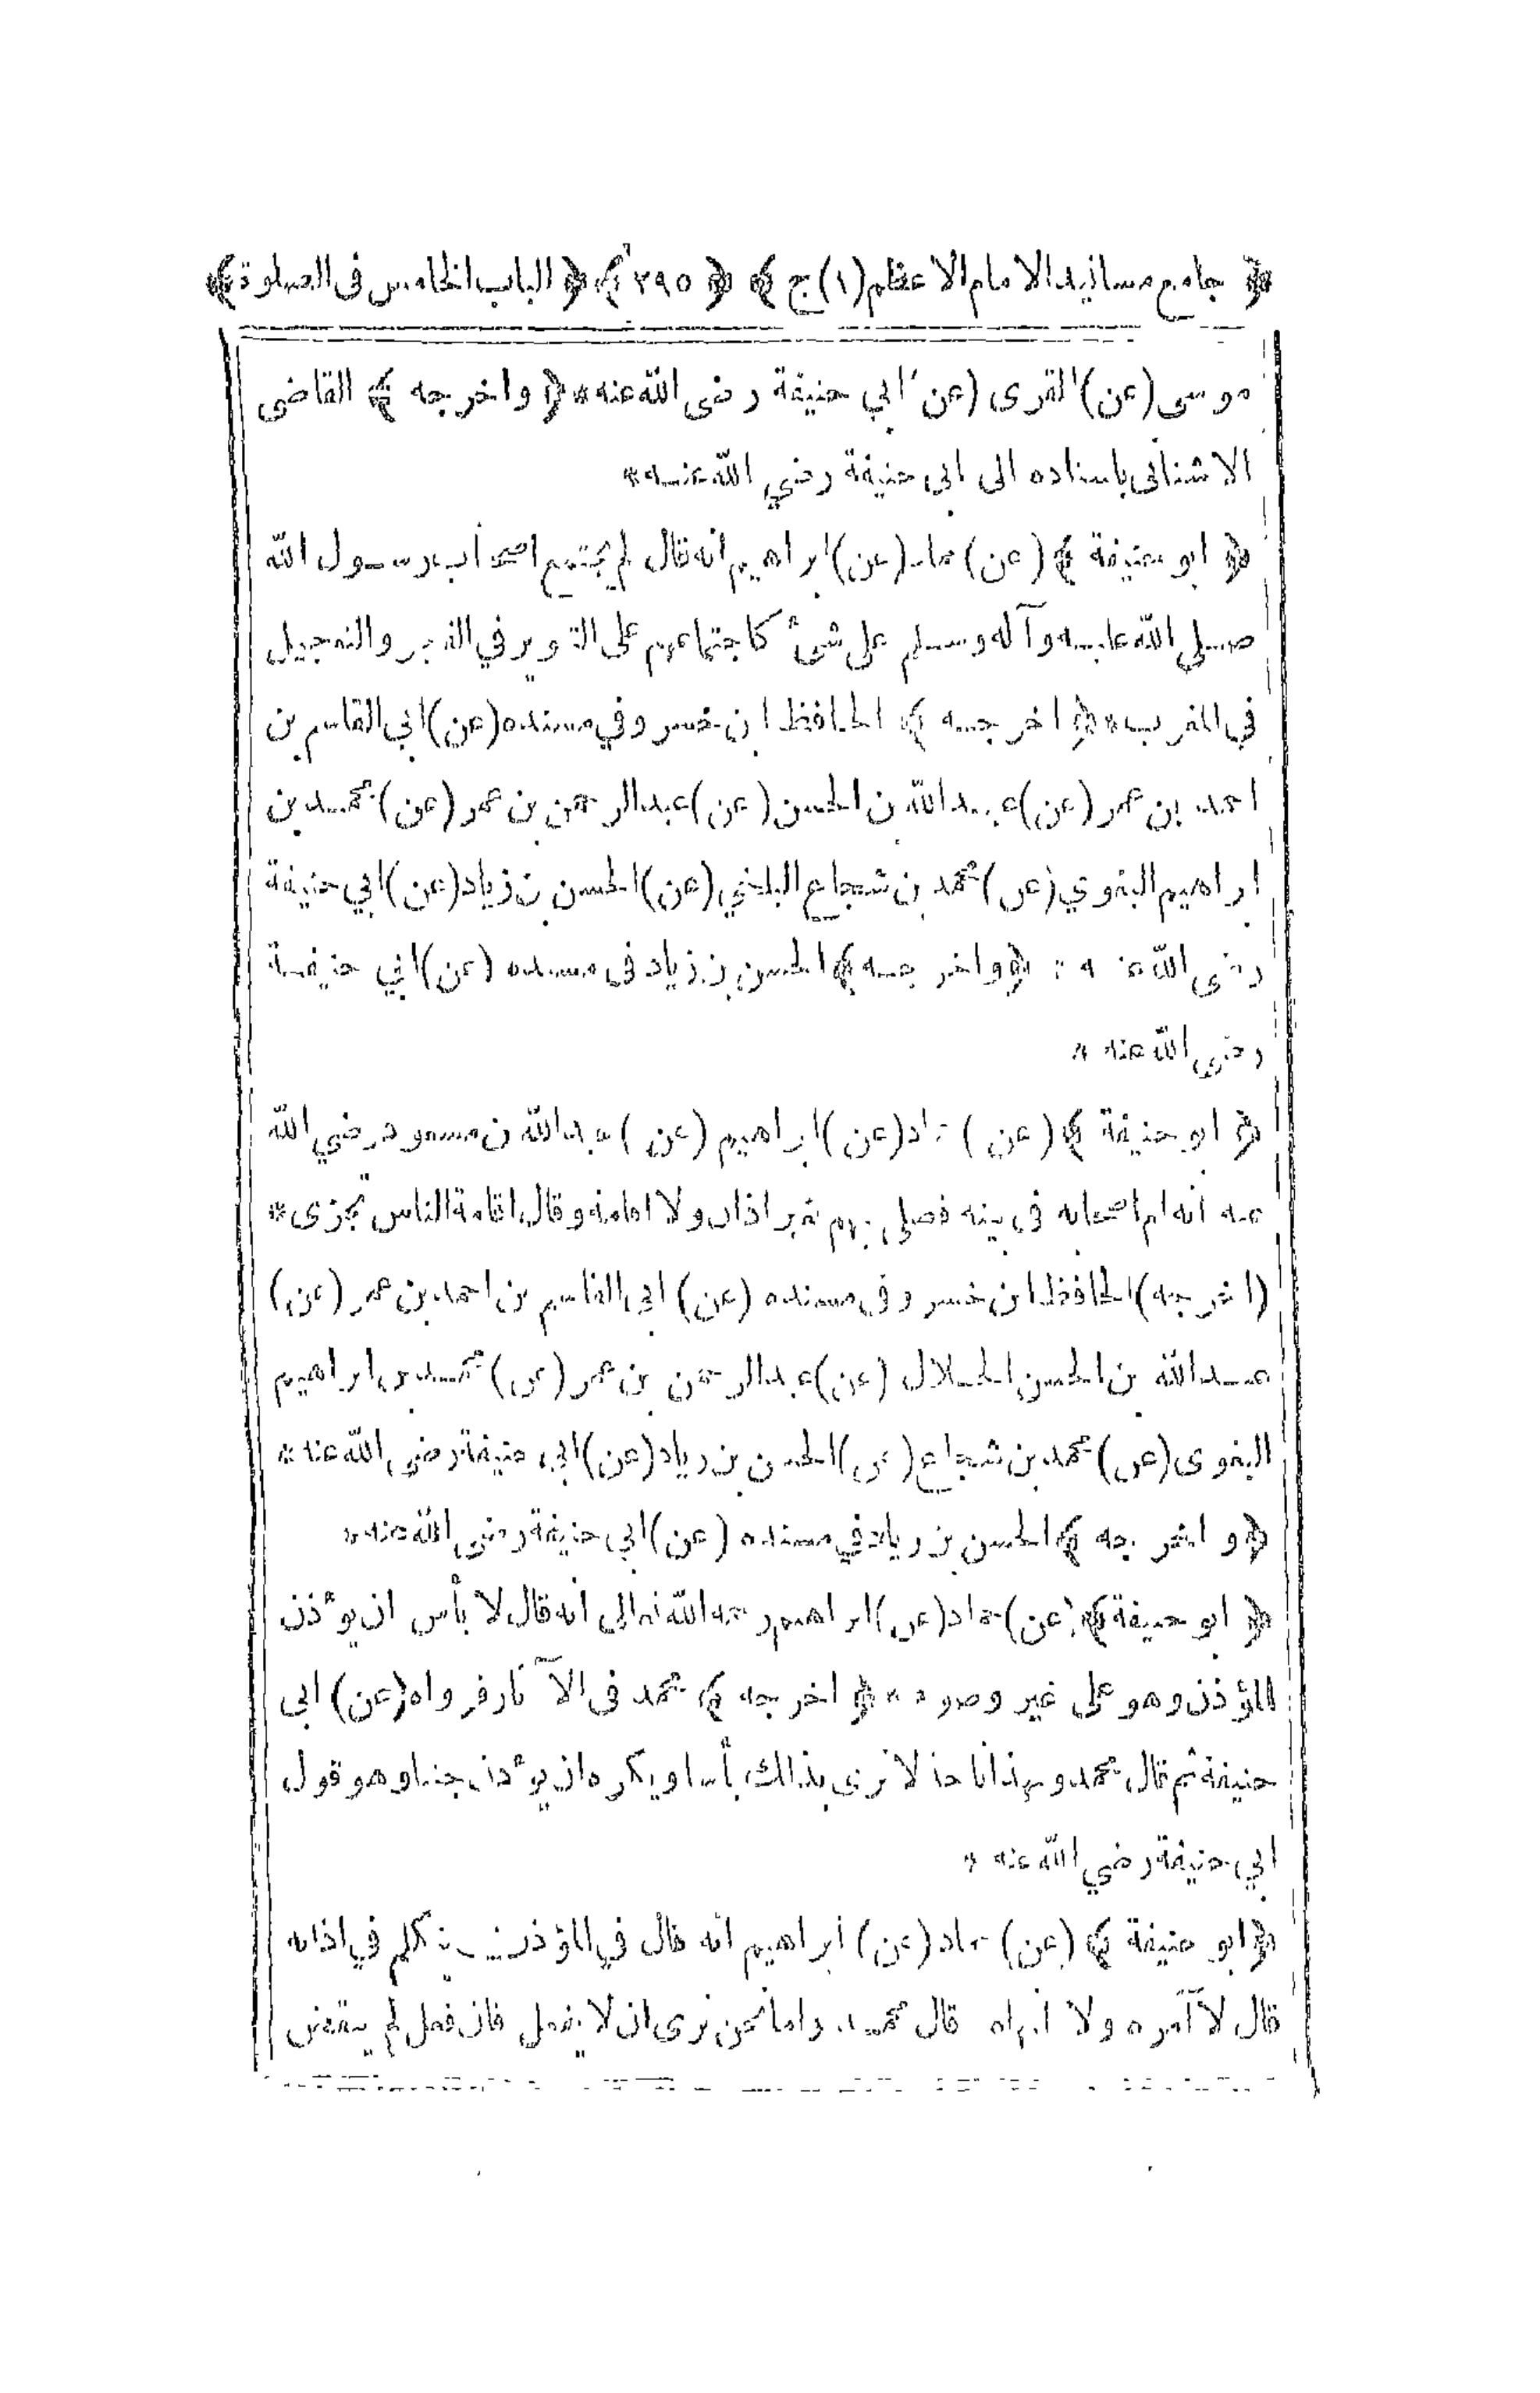 ﴿ جامع مسانيد الامام الاعظم (١) ج ﴾ ﴿ ٢٩٥ ﴾ ﴿ الباب الخامس فى الصلوة ﴾
موسى (عن) المقرى (عن) ابي حنيفة رضى الله عنه * ﴿ واخرجه ﴾ القاضى
الاشنانى باسناده الى ابى حنيفة رضي الله عنه *
﴿ ابو حنيفة ﴾ (عن) حماد (عن) ابراهيم انه قال لم يجتمع اصحاب رسول الله
صلى الله عليه وآله وسلم على شئ كاجتماعهم على التنوير في الفجر والتعجيل
في المغرب * ﴿ اخرجه ﴾ الحافظ ابن خسرو في مسنده (عن) ابي القاسم بن
احمد بن عمر (عن) عبد الله بن الحسن (عن) عبد الرحمن بن عمر (عن) محمد بن
ابراهيم البغوي (عن) محمد بن شجاع البلخي (عن) الحسن بن زياد (عن) ابي حنيفة
رضى الله عنه * ﴿ واخرجه ﴾ الحسن بن زياد فى مسنده (عن) ابي حنيفة
رضي الله عنه *
﴿ ابو حنيفة ﴾ (عن) حماد (عن) ابراهيم (عن) عبد الله بن مسعود رضي الله
عنه انه ام اصحابه فى بيته فصلى بهم بغير اذان ولا اقامة وقال اقامة الناس تجزى *
(اخرجه) الحافظ ابن خسرو فى مسنده (عن) ابى القاسم بن احمد بن عمر (عن)
عبد الله بن الحسن الخلال (عن) عبد الرحمن بن عمر (عن) محمد بن ابراهيم
البغوى (عن) محمد بن شجاع (عن) الحسن بن زياد (عن) ابي حنيفة رضى الله عنه *
﴿ واخرجه ﴾ الحسن بن زياد في مسنده (عن) ابي حنيفة رضى الله عنه *
﴿ ابو حنيفة ﴾ (عن) حماد (عن) ابراهيم رحمه الله تعالى انه قال لا بأس ان يؤذن
المؤذن وهو على غير وضوء * ﴿ اخرجه ﴾ محمد فى الآثار فرواه (عن) ابى
حنيفة ثم قال محمد وبهذا ناخذ لا نرى بذالك بأسا ويكره ان يؤذن جنبا وهو قول
ابي حنيفة رضي الله عنه *
﴿ ابو حنيفة ﴾ (عن) حماد (عن) ابراهيم انه قال في المؤذن يتكلم في اذانه
قال لا آمره ولا انهاه قال محمد واما نحن نرى ان لا يفعل فان فعل لم ينقض